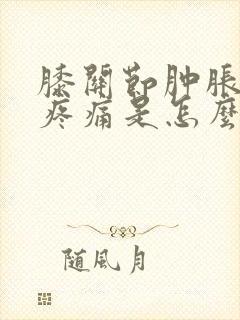 膝關節肿脹
疼痛是怎麼
随風月